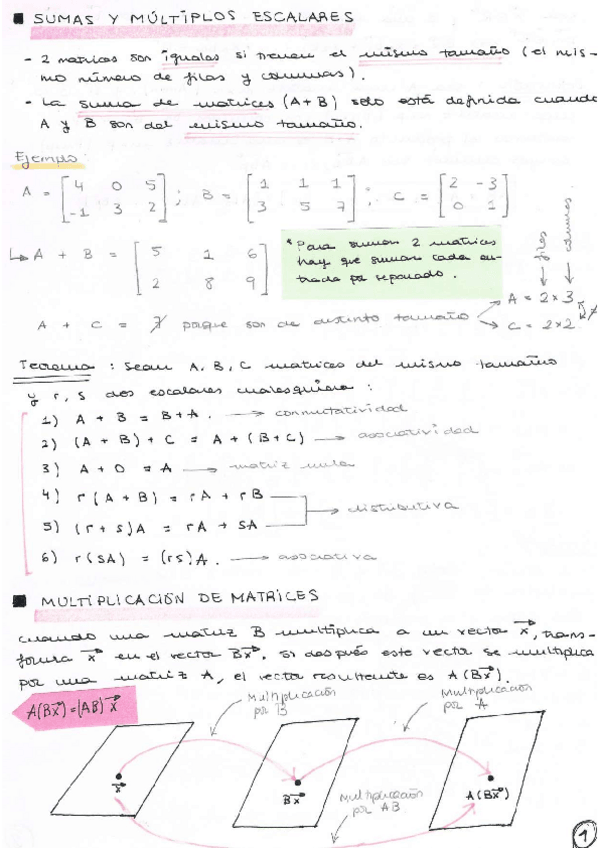 ■ SUMAS Y MÚLTIPLOS ESCALARES
- 2 matrices son iguales si tienen el mismo tamaño (el mis-
mo número de filas y columnas).
- La suma de matrices (A+B) solo está definida cuando
A y B son del mismo tamaño.
Ejemplo:
A = [4 0 5; -1 3 2] ; B = [1 1 1; 3 5 7] ; C = [2 -3; 0 1]
↳ A + B = [5 1 6; 2 8 9]
* Para sumar 2 matrices
hay que sumar cada en-
trada por separado.
filas
columnas
A = 2x3
A + C = ∄ porque son de distinto tamaño
C = 2x2
Teorema: Sean A, B, C matrices del mismo tamaño
y r, s dos escalares cualesquiera:
1) A + B = B + A. → conmutatividad
2) (A + B) + C = A + (B+C) → asociatividad
3) A + 0 = A → matriz nula
4) r(A + B) = rA + rB
→ distributiva
5) (r + s)A = rA + sA
6) r(sA) = (rs)A. → asociativa
■ MULTIPLICACIÓN DE MATRICES
cuando una matriz B multiplica a un vector x⃗, trans-
forma x⃗ en el vector Bx⃗. Si después este vector se multiplica
por una matriz A, el vector resultante es A(Bx⃗).
A(Bx⃗)=(AB)x⃗
Multiplicación
por B
Multiplicación
por A
x⃗
Bx⃗
A(Bx⃗)
Multiplicación
por AB
1